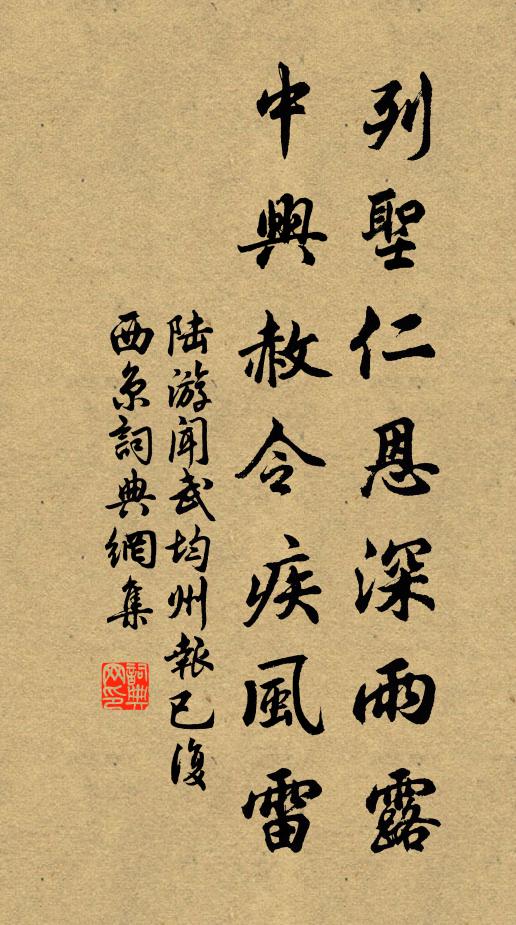 列聖仁恩深雨露
中興赦令疾風雷
陆游闻武均州報已復
西京詞典網集
詞典
网印